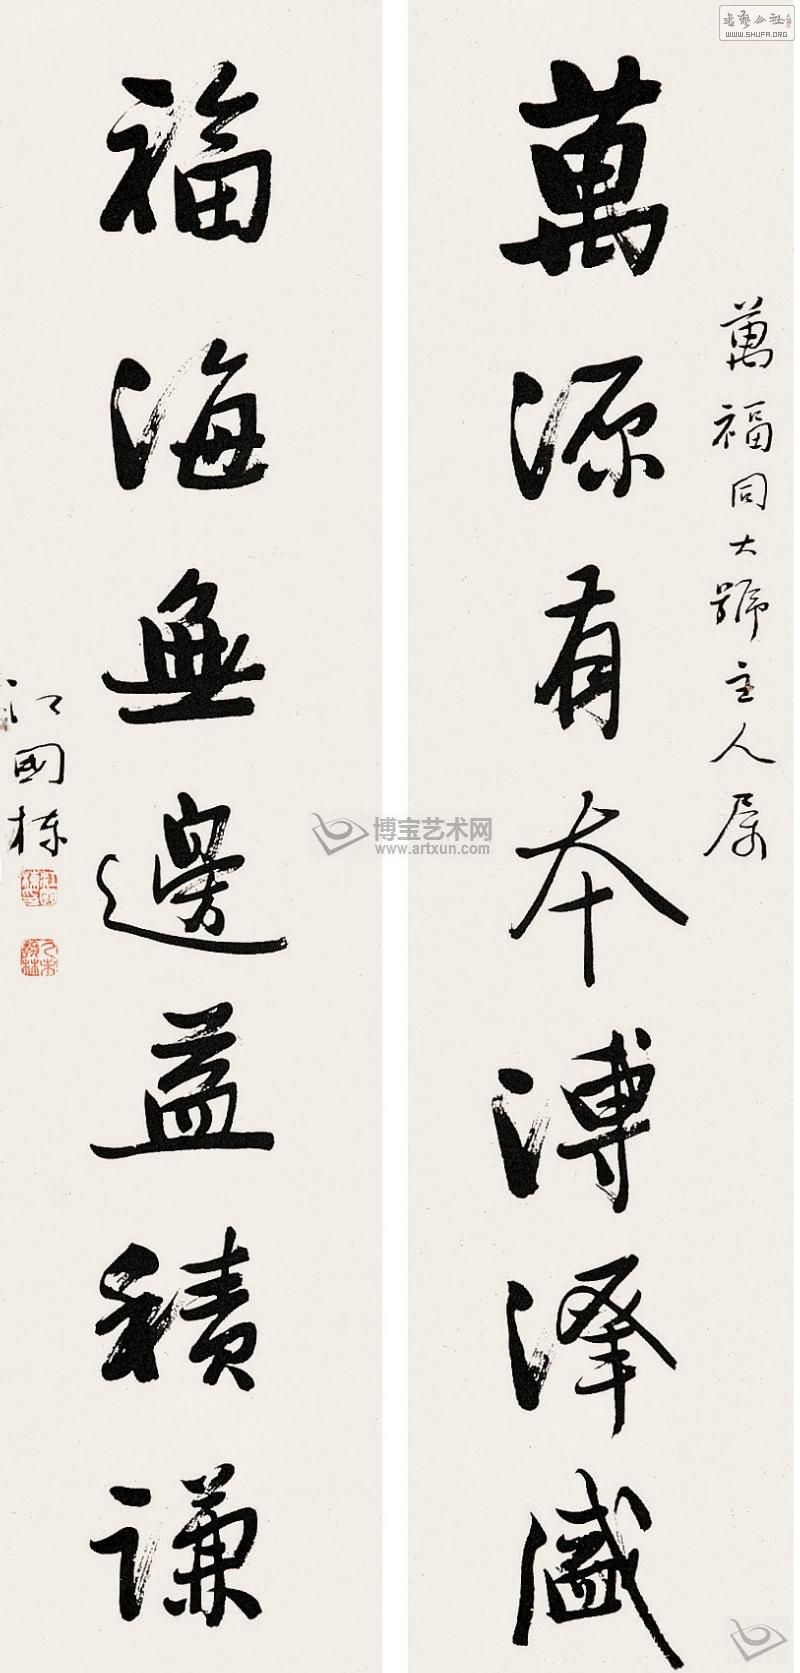 萬福同大號主人属
萬源有本溥澤盛
福海無邊益積謙
江國棟
書藝公社
WWW.SHUFA.ORG
博宝艺术网
www.artxun.com